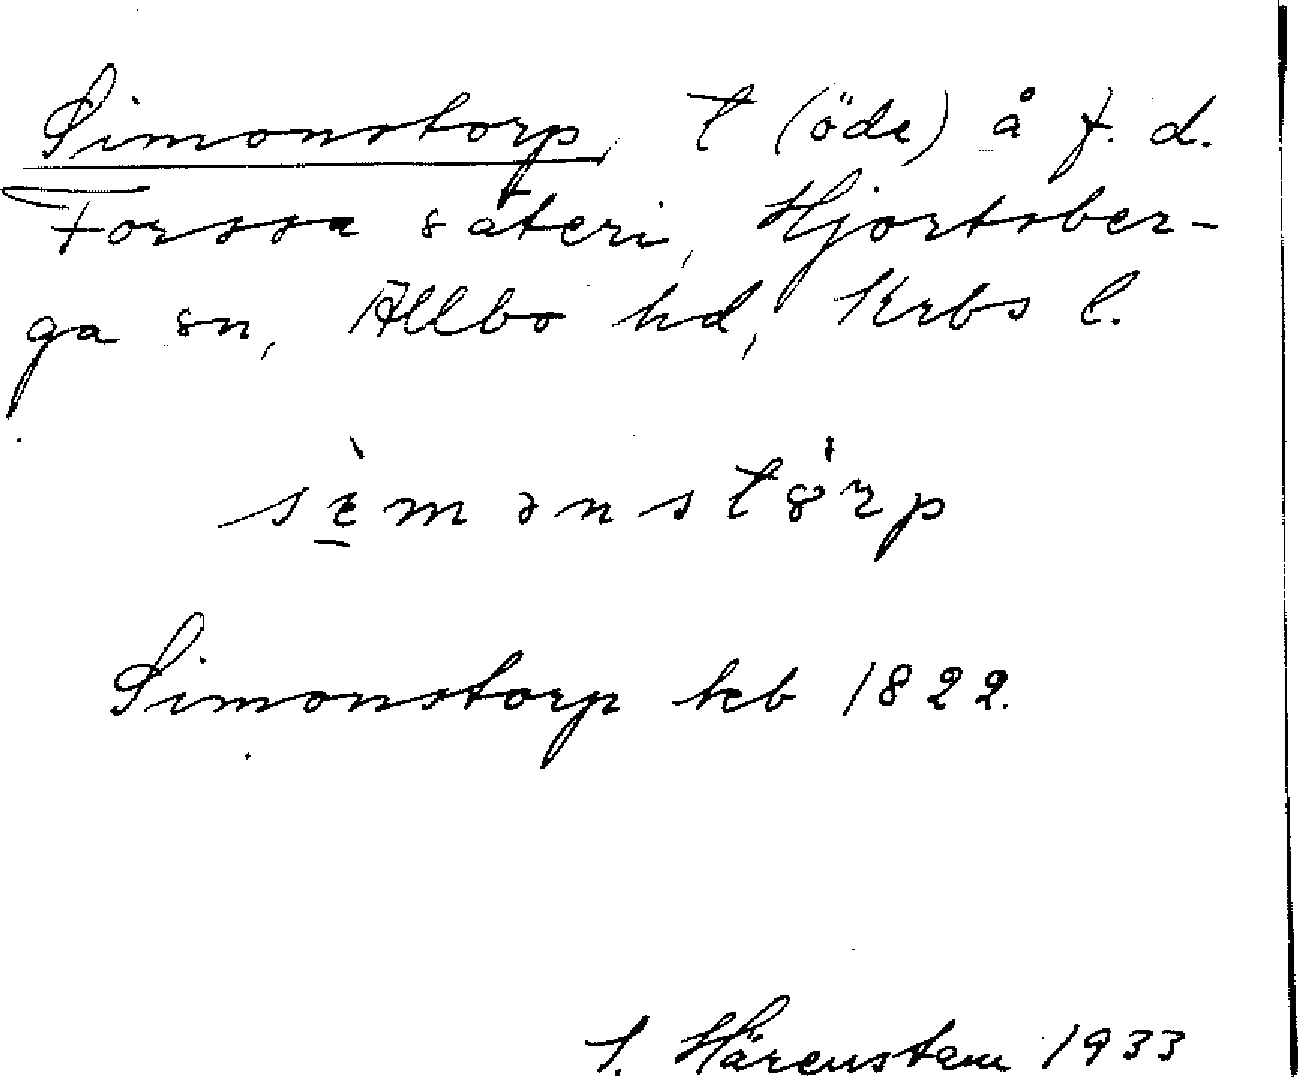 Simonstorp, t (öde) å f. d.
Forssa säteri, Hjortsber-
ga sn, Allbo hd, Krbs l.
Simonstorp kb 1822.
Härenstam 1933